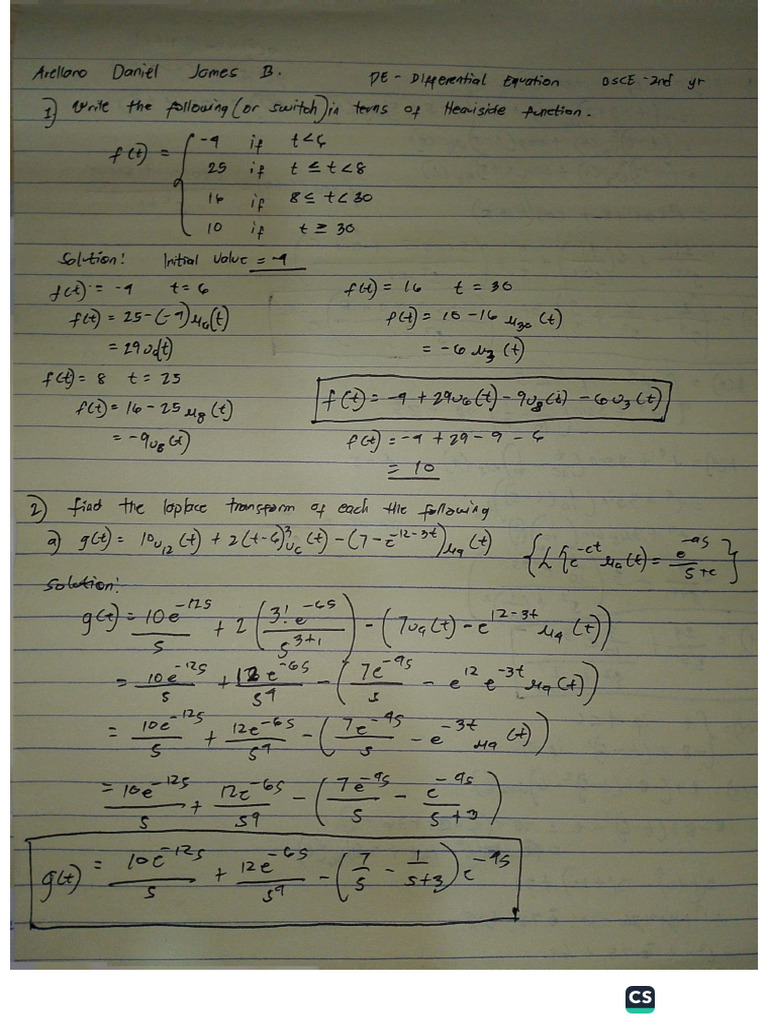 Arellano Daniel James B. DE - Differential Equation BSCE - 2nd yr
1) Write the following (or switch) in terms of Heaviside function.
f(t) = { -4 if t < 6
25 if t ≤ t < 8
16 if 8 ≤ t < 30
10 if t ≥ 30
Solution: Initial value = -4
f(t) = -4 t = 6 f(t) = 16 t = 30
f(t) = 25-(-4)μ6(t) f(t) = 10-16 μ30 (t)
= 29u6(t) = -6 μ3 (t)
f(t) = 8 t = 25
f(t) = 16-25 μ8 (t) f(t) = -4 + 29u6(t) - 9u8(t) - 6u3(t)
= -9u8 (t) f(t) = -4 + 29 - 9 - 6
= 10
2) find the laplace transform of each the following
a) g(t) = 10u12(t) + 2(t-6)^3 u6(t) - (7-e^{-12-3t})μ4(t) {L{e^{-ct} μa(t) = e^{-as}/s+c}
Solution:
g(t) = 10e^{-12s}/s + 2(3! e^{-6s}/s^{3+1}) - (7u4(t) - e^{12-3t} μ4(t))
= 10e^{-12s}/s + 12e^{-6s}/s^4 - (7e^{-4s}/s - e^{12} e^{-3t} μ4(t))
= 10e^{-12s}/s + 12e^{-6s}/s^4 - (7e^{-4s}/s - e^{-3t} μ4(t))
= 10e^{-12s}/s + 12e^{-6s}/s^4 - (7e^{-4s}/s - e^{-4s}/s+3)
g(t) = 10e^{-12s}/s + 12e^{-6s}/s^4 - (7/s - 1/s+3) e^{-4s}
CS